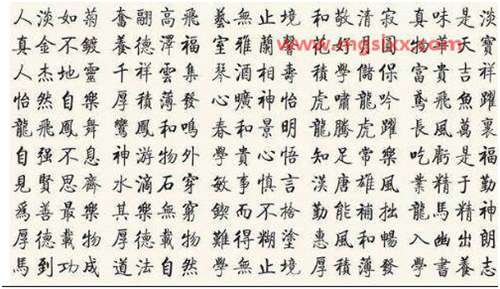 人淡如菊 奮翮高飛 藝無止境 和敬清寂 真味是淡
真金不鍍 養德澤福 室雅蘭馨 好月圓 物天寶
人杰地靈 千祥雲集 琴壽 積學儲 富貴吉祥
怡然自樂 厚積薄發 心曠神怡 虎嘯龍吟 鳶飛魚躍
龍飛鳳舞 鸞鳳和鳴 春和景明 龍騰虎躍 長風萬裏
自强不息 神游物外 學貴心悟 知足常樂 吃虧是福
見賢思齊 水滴石穿 敏事慎言 漢唐雄風 業精于勤
爲善最樂 其樂無窮 鍥而不捨 勤能補拙 龍馬精神
厚德載物 厚德載物 難得糊塗 惠風和暢 入幽出朗
馬到功成 道法自然 學無止境 厚積薄發 學書養志